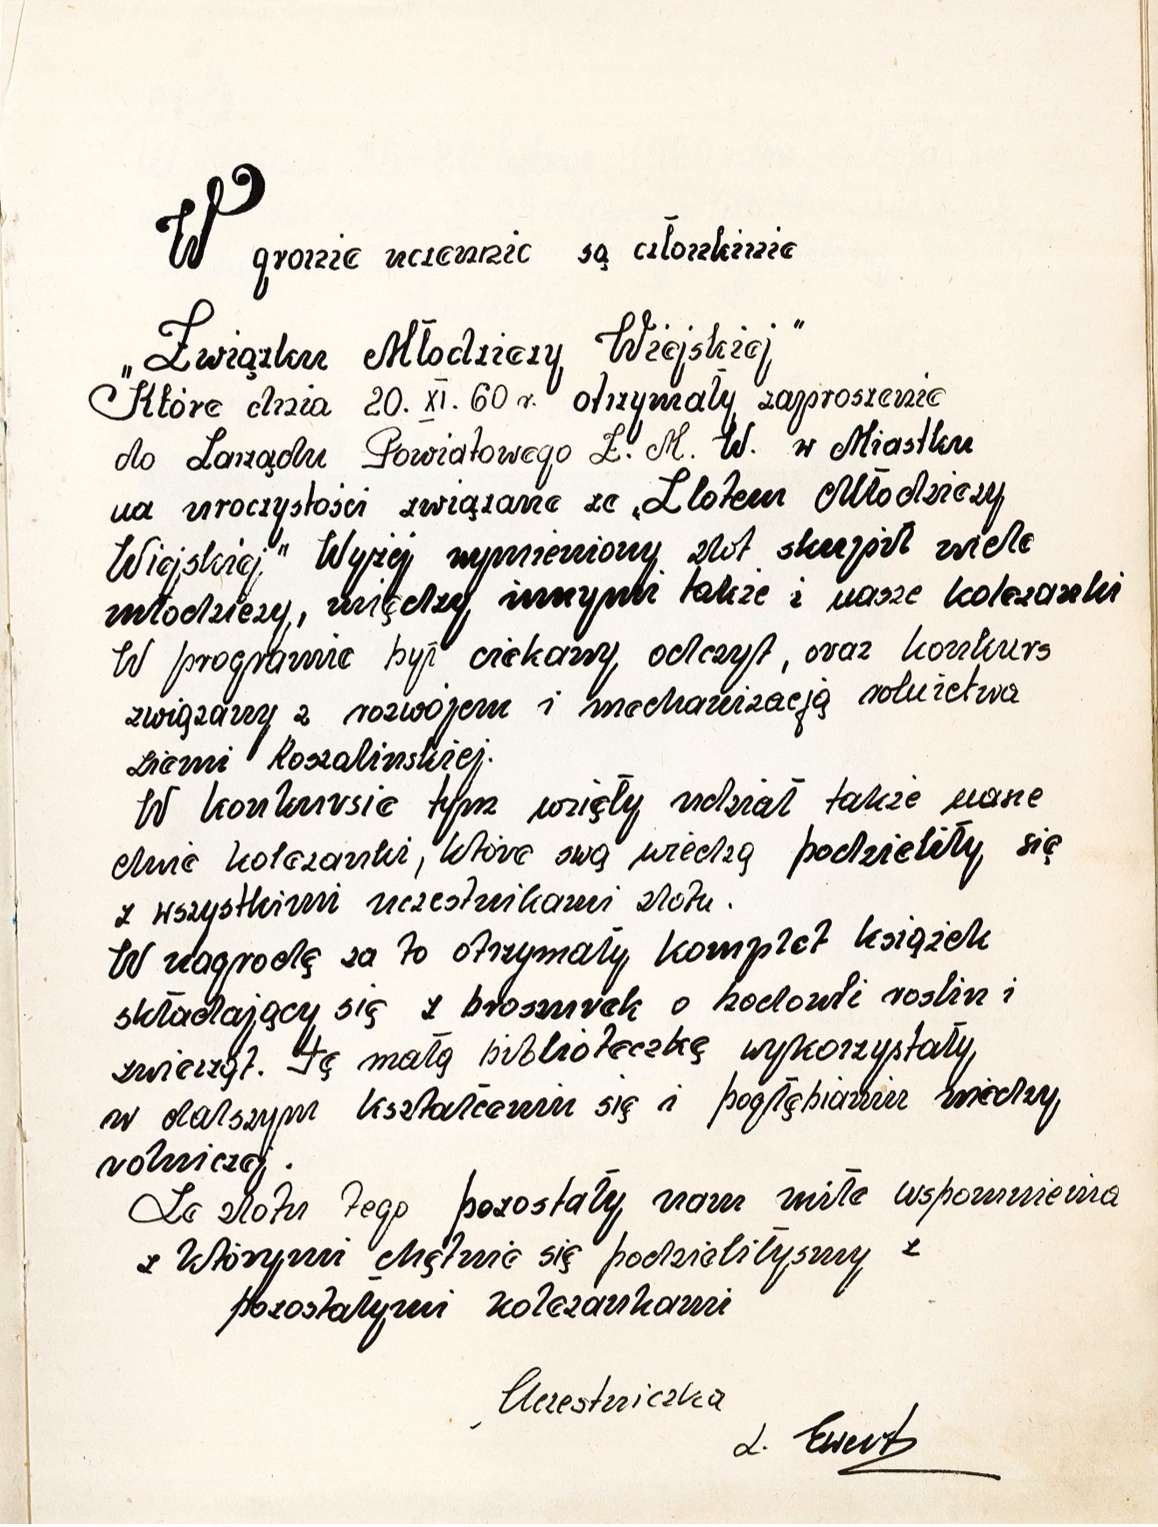 W gronie uczennic są członkinie
„Związku Młodzieży Wiejskiej"
Które dnia 20. XI. 60 r. otrzymały zaproszenie
do Zarządu Powiatowego Z. M. W. w Miastku
na uroczystości związane ze „Zlotem Młodzieży
Wiejskiej" Wyżej wymieniony zlot skupił wiele
młodzieży, między innymi także i nasze koleżanki
W programie był ciekawy odczyt, oraz konkurs
związany z rozwojem i mechanizacją rolnictwa
ziemi Koszalinskiej.
W konkursie tym wzięły udział także nasze
dwie koleżanki, które swą wiedzą podzieliły się
z wszystkimi uczestnikami zlotu.
W nagrodę za to otrzymały komplet książek
składający się z broszurek o hodowli roślin i
zwierząt. Tę małą biblioteczkę wykorzystały
w dalszym kształceniu się i pogłębianiu wiedzy
rolniczej.
Ze zlotu tego pozostały nam miłe wspomnienia
z którymi chętnie się podzieliłyśmy z
pozostałymi koleżankami
Uczestniczka
Ł. Ewert